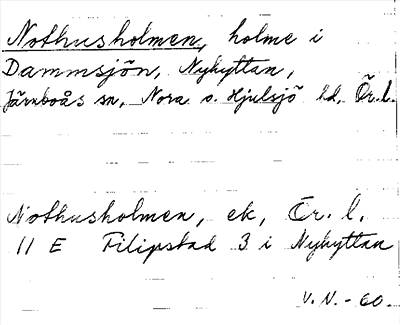 Nothusholmen, holme i
Dammsjön, Nyhyttan,
Järnboås sn, Nora o. Hjulsjö hd, Ör. l.
Nothusholmen, ek, Ör. l.
11 E Filipstad 3 i Nyhyttan
V. N. - 60.